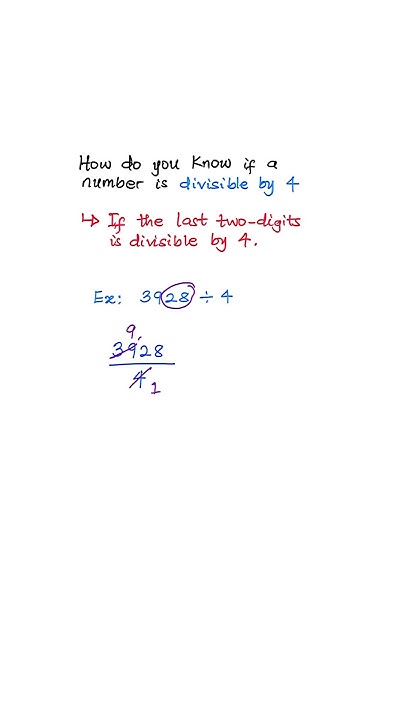 How do you know if a
number is divisible by 4
↳ If the last two-digits
is divisible by 4.
Ex: 3928 ÷ 4
9
3928
4
1